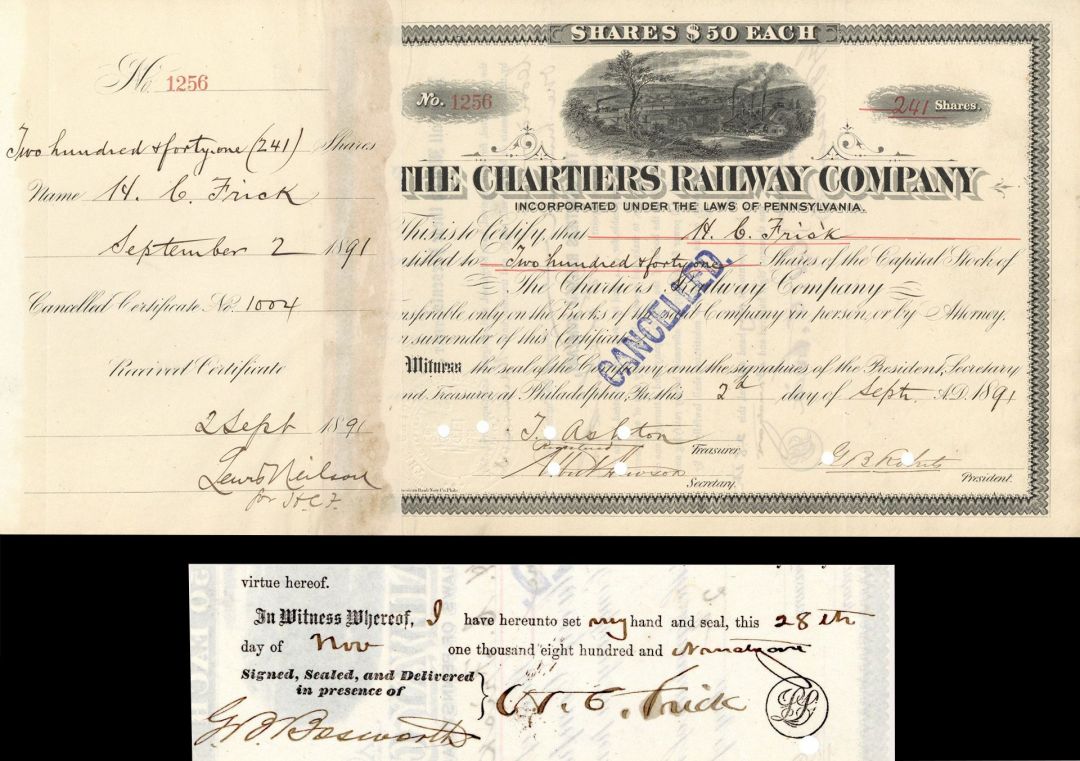 No. 1256
Two hundred & forty-one (241) Shares
Name H. C. Frick
September 2 1891
Cancelled Certificate No. 1004
Received Certificate
2 Sept 1891
Lewis Neilson
for H.C.F.
SHARES $50 EACH
No. 1256
241 Shares.
THE CHARTIERS RAILWAY COMPANY
INCORPORATED UNDER THE LAWS OF PENNSYLVANIA.
This is to Certify, that H. C. Frick
ntitled to Two hundred & forty-one Shares of the Capital Stock of
The Chartiers Railway Company
nsferable only on the Books of the said Company in person, or by Attorney,
n surrender of this Certificate
CANCELLED.
Witness the seal of the Company and the signatures of the President, Secretary
nd Treasurer at Philadelphia, Pa. this 2d day of Sept. A.D. 1891
T. Ashton
Registered
Treasurer
Secretary.
G B Roberts
President.
virtue hereof.
In Witness Whereof, I have hereunto set my hand and seal, this 28th
day of Nov one thousand eight hundred and Ninety one
Signed, Sealed, and Delivered
in presence of
H. C. Frick
LS
G. B. Bosworth